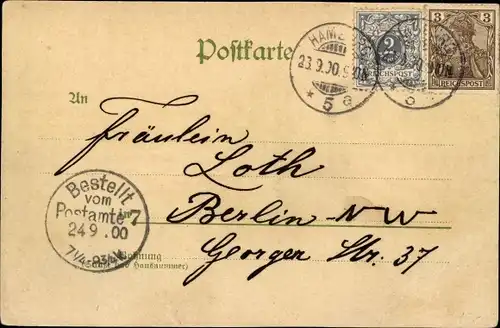 Postkarte
HAMB
23.9.00.9-10N
* 5 a
2
REICHSPOST
3 3
REICHSPOST
An
Fräulein
Loth
Berlin-NW
Georgen Str. 37
Bestellt
vom
Postamte 7
24 9 .00
Wohnung
(Straße und Hausnummer)